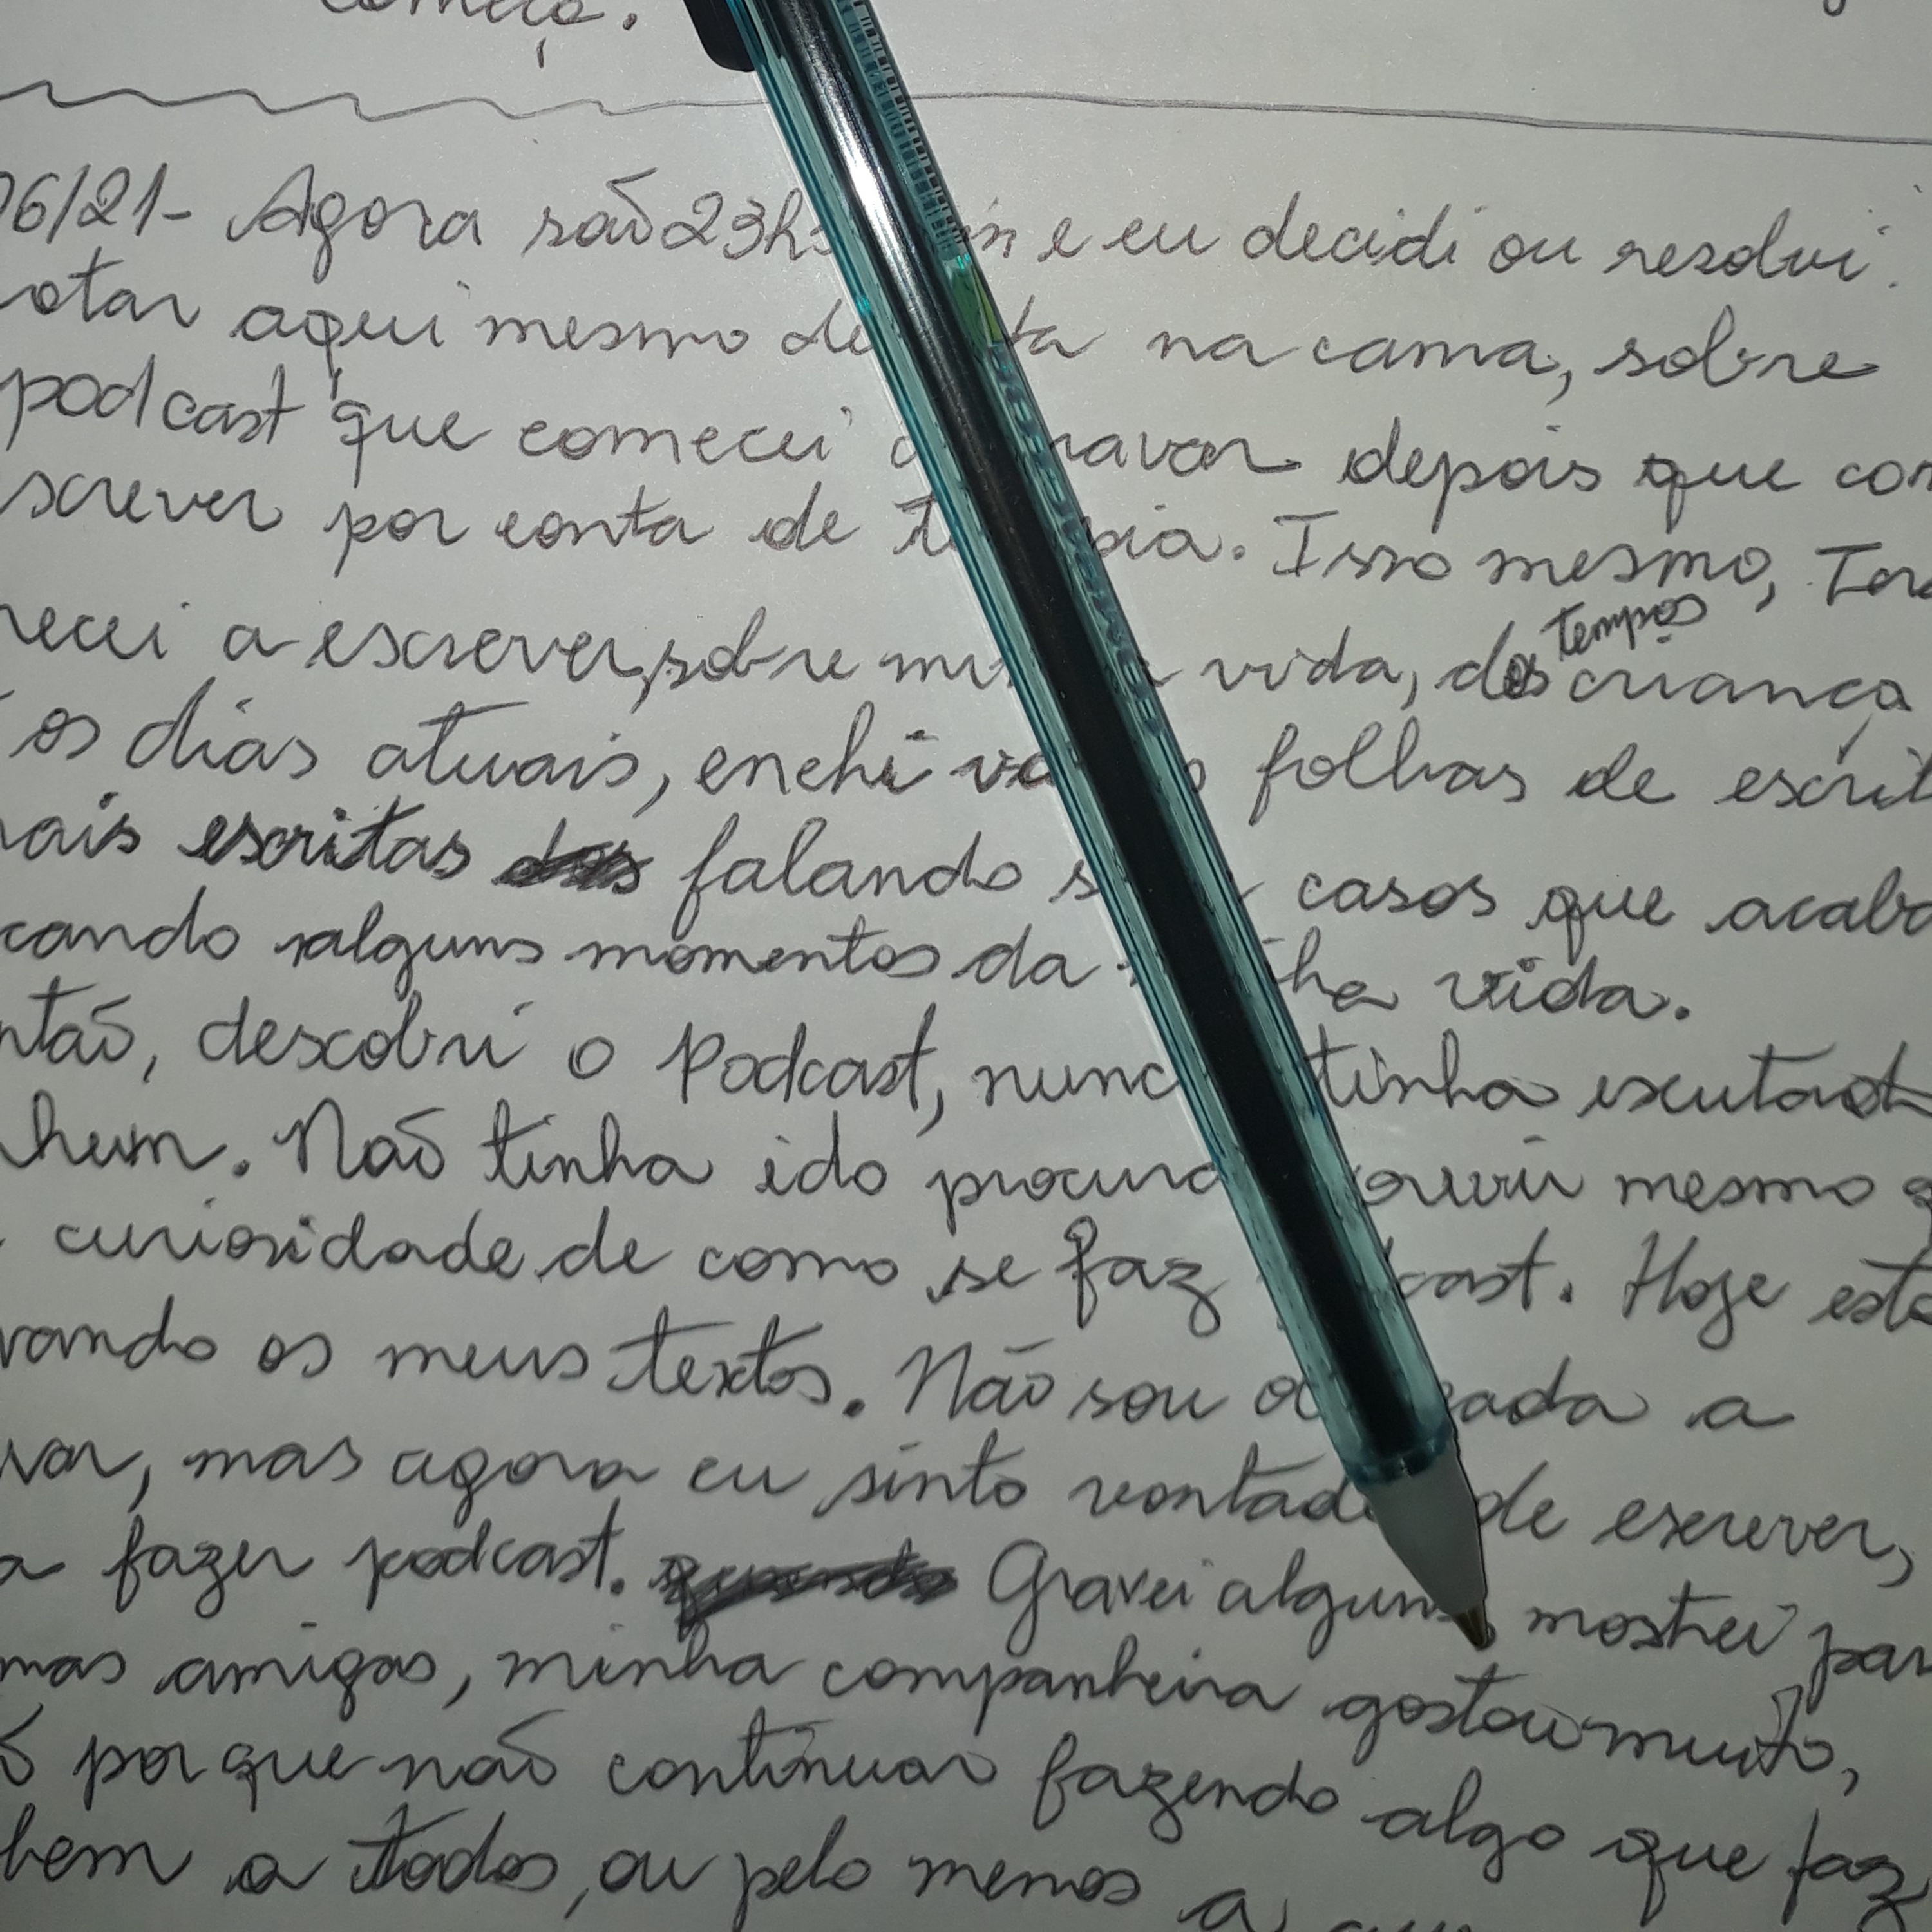 começo.
06/21- Agora são 23h e eu decidi ou resolvi
otar aqui mesmo de ta na cama, sobre
podcast que comecei a ravar depois que com
screver por conta de te pia. Isso mesmo, Tera
mecei a escrever, sobre mi a vida, dos tempos criança
os dias atuais, enchi va o folhas de escrit
mais escritas falando s casos que acaba
cando alguns momentos da inha vida.
ntão, descobri o Podcast, nunc tinha escutado
nhum. Não tinha ido procura ouvir mesmo q
curiosidade de como se faz cast. Hoje esto
vando os meus textos. Não sou o gada a
var, mas agora eu sinto vontade de escrever,
a fazer podcast. Gravei alguns mostrei par
mas amigas, minha companheira gostou muito,
ó por que não continuar fazendo algo que faz
bem a todos, ou pelo menos a